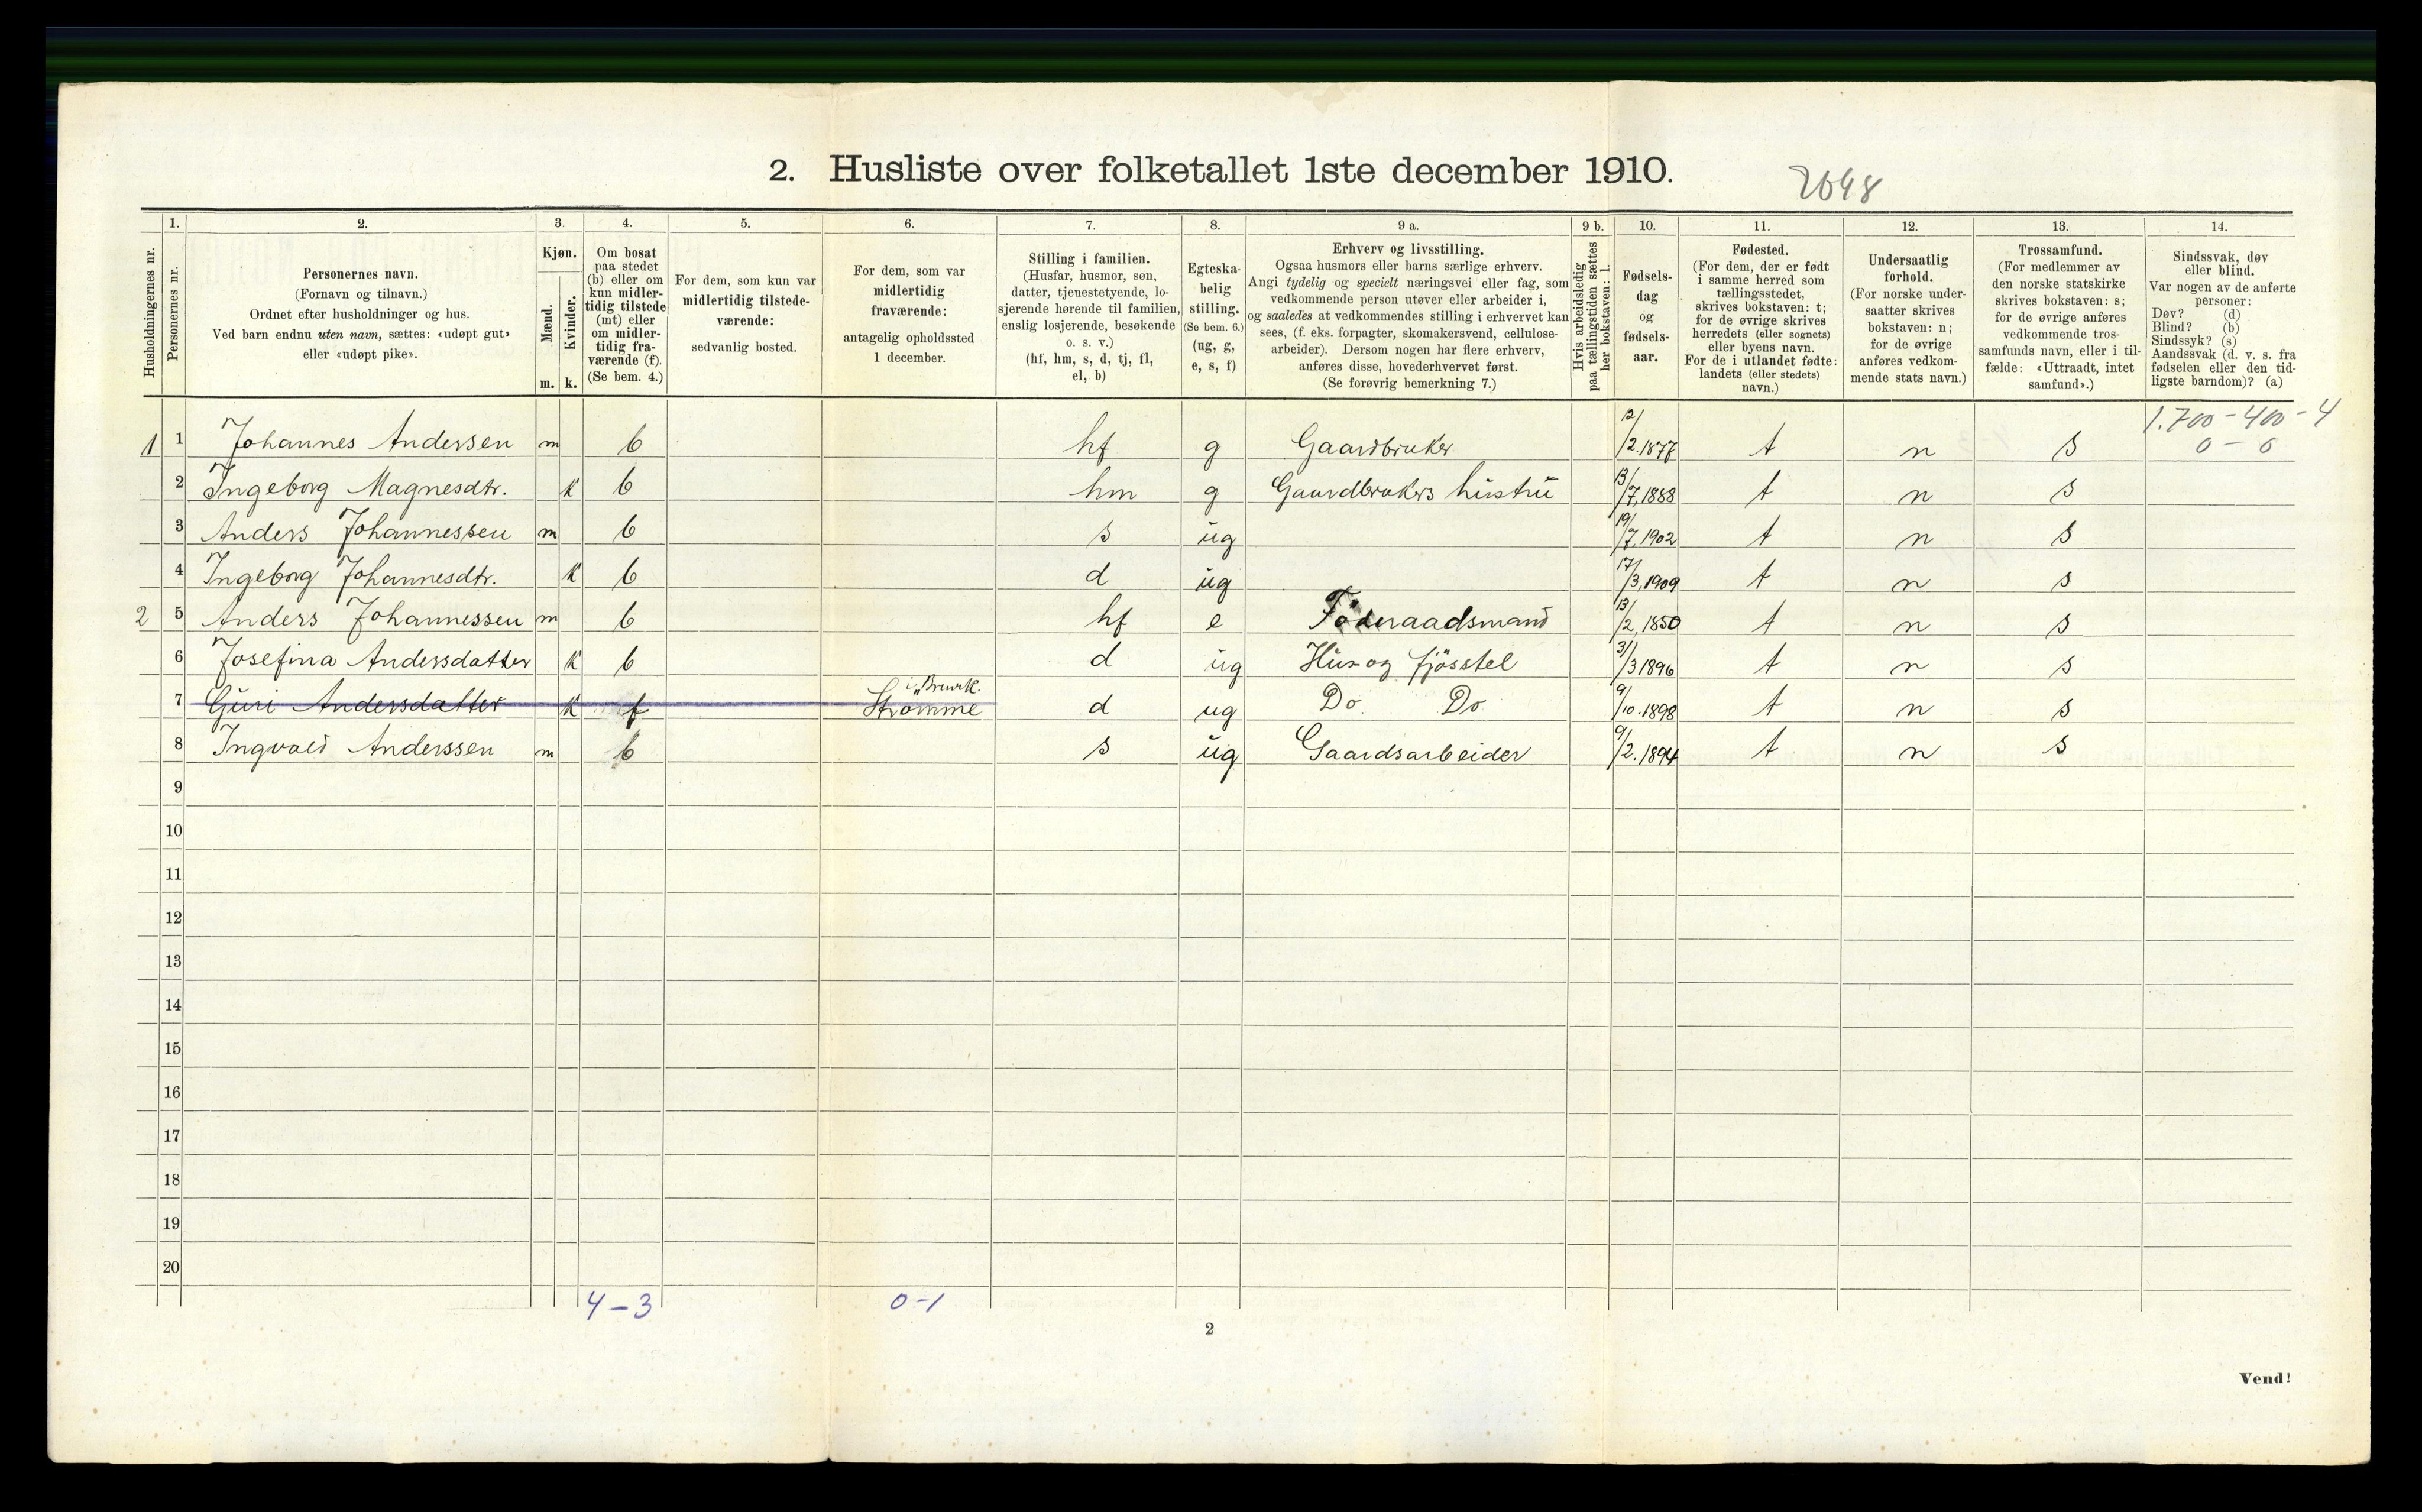 2. Husliste over folketallet 1ste december 1910.
2048
1. 2. 3. 4. 5. 6. 7. 8. 9 a. 9 b. 10. 11. 12. 13. 14.
Husholdningernes nr.
Personernes nr.
Personernes navn.
(Fornavn og tilnavn.)
Ordnet efter husholdninger og hus.
Ved barn endnu uten navn, sættes: «udøpt gut»
eller «udøpt pike».
Kjøn.
Mænd.
Kvinder.
m. k.
Om bosat
paa stedet
(b) eller om
kun midler-
tidig tilstede
(mt) eller
om midler-
tidig fra-
værende (f).
(Se bem. 4.)
For dem, som kun var
midlertidig tilstede-
værende:
sedvanlig bosted.
For dem, som var
midlertidig
fraværende:
antagelig opholdssted
1 december.
Stilling i familien.
(Husfar, husmor, søn,
datter, tjenestetyende, lo-
sjerende hørende til familien,
enslig losjerende, besøkende
o. s. v.)
(hf, hm, s, d, tj, fl,
el, b)
Egteska-
belig
stilling.
(Se bem. 6.)
(ug, g,
e, s, f)
Erhverv og livsstilling.
Ogsaa husmors eller barns særlige erhverv.
Angi tydelig og specielt næringsvei eller fag, som
vedkommende person utøver eller arbeider i,
og saaledes at vedkommendes stilling i erhvervet kan
sees, (f. eks. forpagter, skomakersvend, cellulose-
arbeider). Dersom nogen har flere erhverv,
anføres disse, hovederhvervet først.
(Se forøvrig bemerkning 7.)
Hvis arbeidsledig
paa tællingstiden sættes
her bokstaven: l.
Fødsels-
dag
og
fødsels-
aar.
Fødested.
(For dem, der er født
i samme herred som
tællingsstedet,
skrives bokstaven: t;
for de øvrige skrives
herredets (eller sognets)
eller byens navn.
For de i utlandet fødte:
landets (eller stedets)
navn.)
Undersaatlig
forhold.
(For norske under-
saatter skrives
bokstaven: n;
for de øvrige
anføres vedkom-
mende stats navn.)
Trossamfund.
(For medlemmer av
den norske statskirke
skrives bokstaven: s;
for de øvrige anføres
vedkommende tros-
samfunds navn, eller i til-
fælde: «Uttraadt, intet
samfund».)
Sindssvak, døv
eller blind.
Var nogen av de anførte
personer:
Døv? (d)
Blind? (b)
Sindssyk? (s)
Aandssvak (d. v. s. fra
fødselen eller den tid-
ligste barndom)? (a)
1.700-400-4
0-0
1 1 Johannes Andersen m b hf g Gaardbruker 12/2.1877 t n s
2 Ingeborg Magnesdtr. k b hm g Gaardbrukers hustru 13/7,1888 t n s
3 Anders Johannessen m b s ug 19/7,1902 t n s
4 Ingeborg Johannesdtr. k b d ug 17/3,1909 t n s
2 5 Anders Johannessen m b hf e Föderaadsmand 13/2,1850 t n s
6 Josefina Andersdatter k b d ug Hus og fjösstel 31/3 1896 t n s
7 Guri Andersdatter k f Strømme i Bruvik. d ug Do. Do 9/10.1898 t n s
8 Ingvald Anderssen m b s ug Gaardsarbeider 9/2.1894 t n s
9
10
11
12
13
14
15
16
17
18
19
20
4-3 0-1
2
Vend!